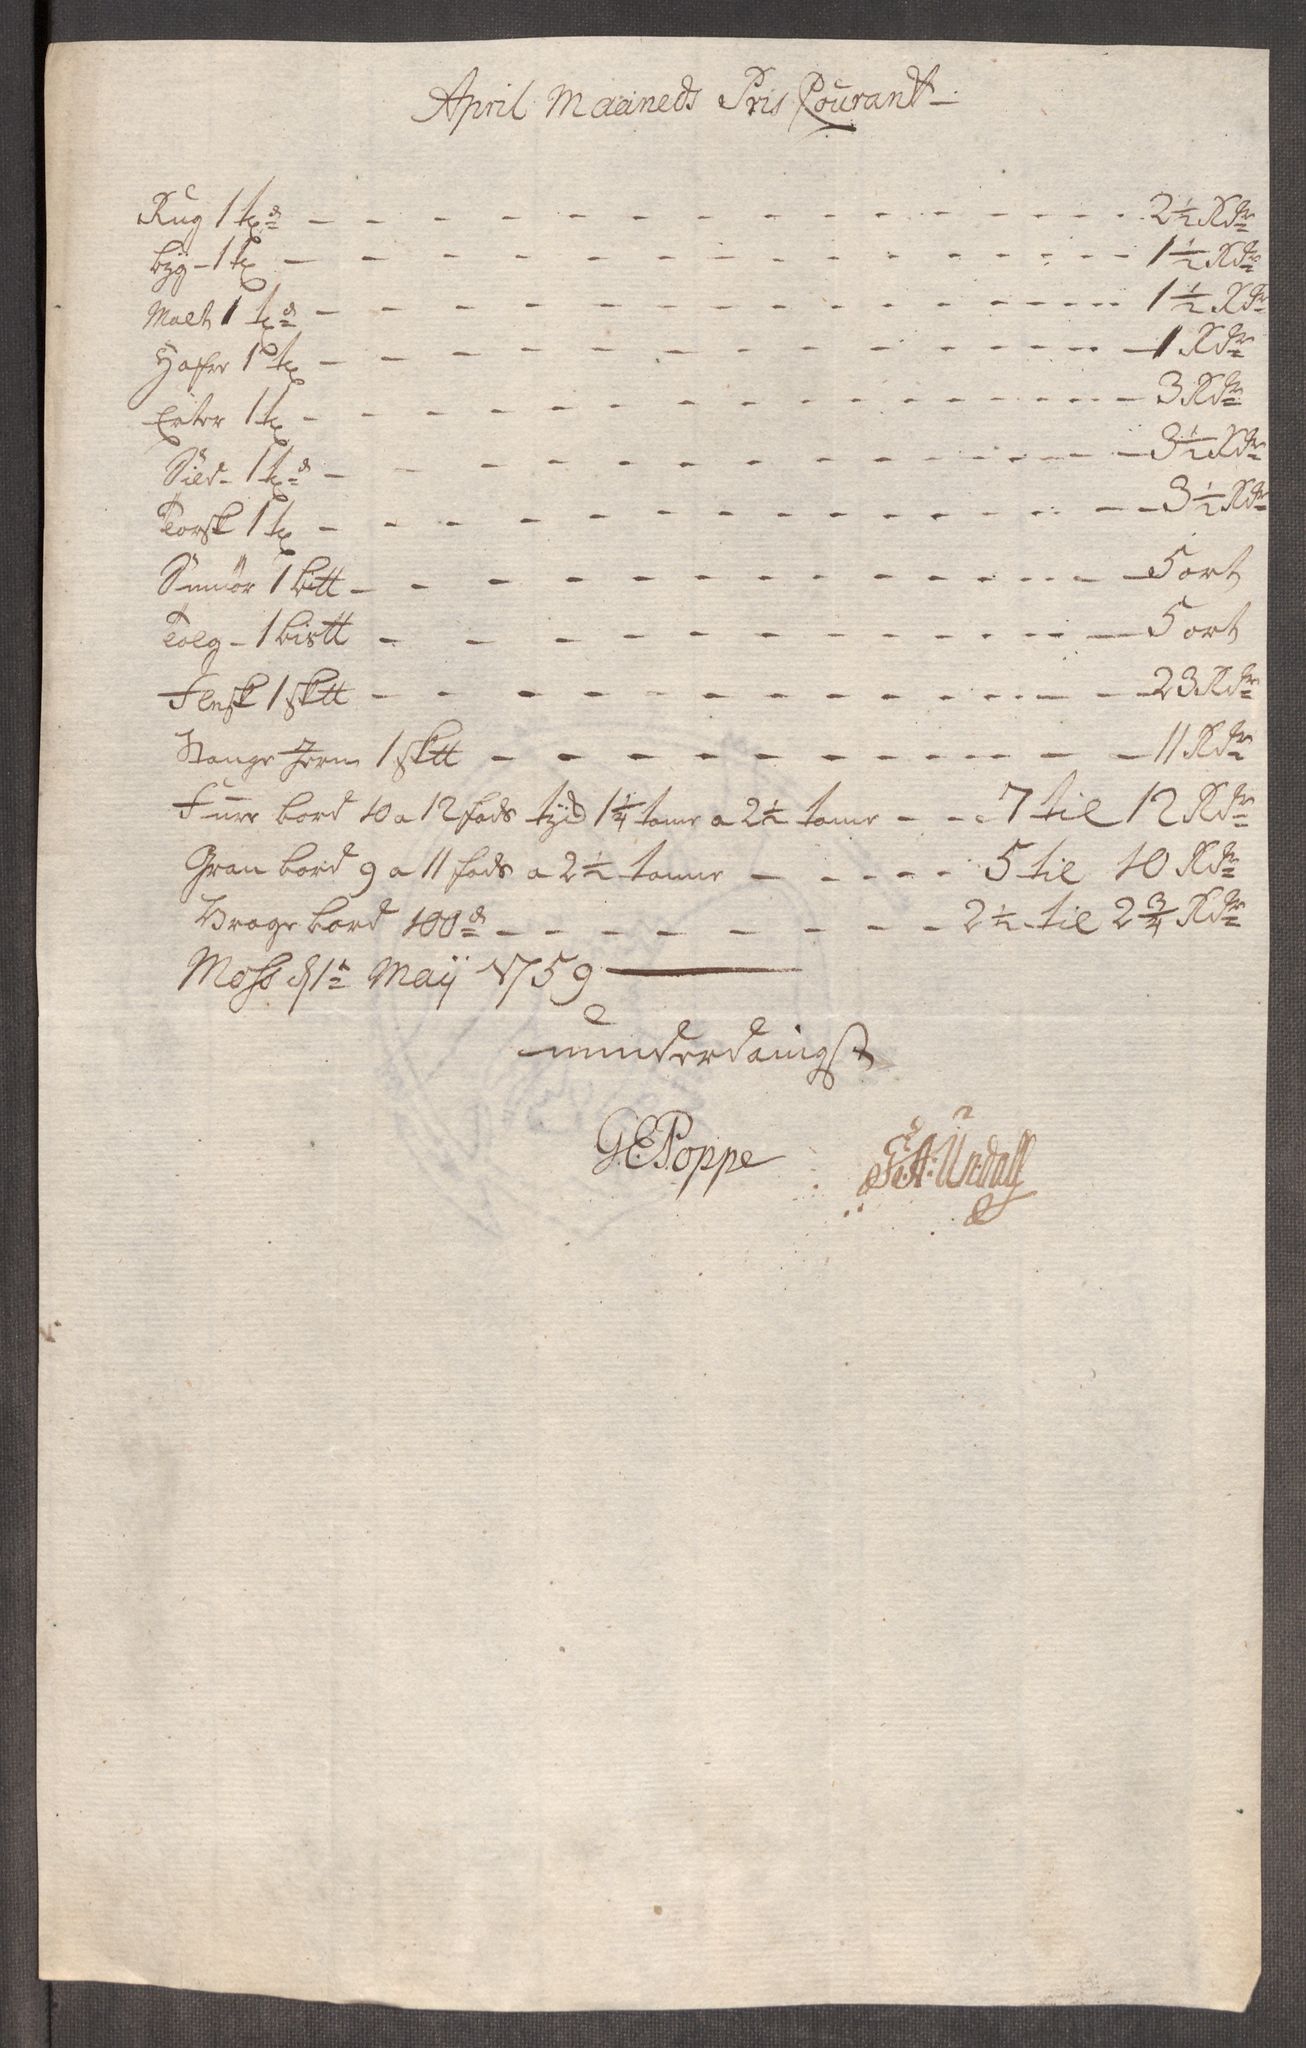 April Maaneds Pris Courant
Rug 1 tde 2½ Rdr
byg 1 t 1½ Rdr
Malt 1 tde 1½ Rdr
Hafre 1 t 1 Rdr
Erter 1 t 3 Rdr
Sild 1 tde 3½ Rdr
Torsk 1 t 3½ Rdr
Smiör 1 btt 5 ort
Tolg 1 bistt 5 ort
Flesk 1 sktt 23 Rdr
Stange Jern 1 sktt 11 Rdr
Fure bord 10 a 12 fods 1¼ tome a 2½ tome 7 til 12 Rdr
Gran bord 9 a 11 fods a 2½ tomme 5 til 10 Rdr
Vrage bord 100de 2½ til 2¾ Rdr
Moss d 1te Maÿ 1759
underdanigst
G.E.Poppe F:A:Undall